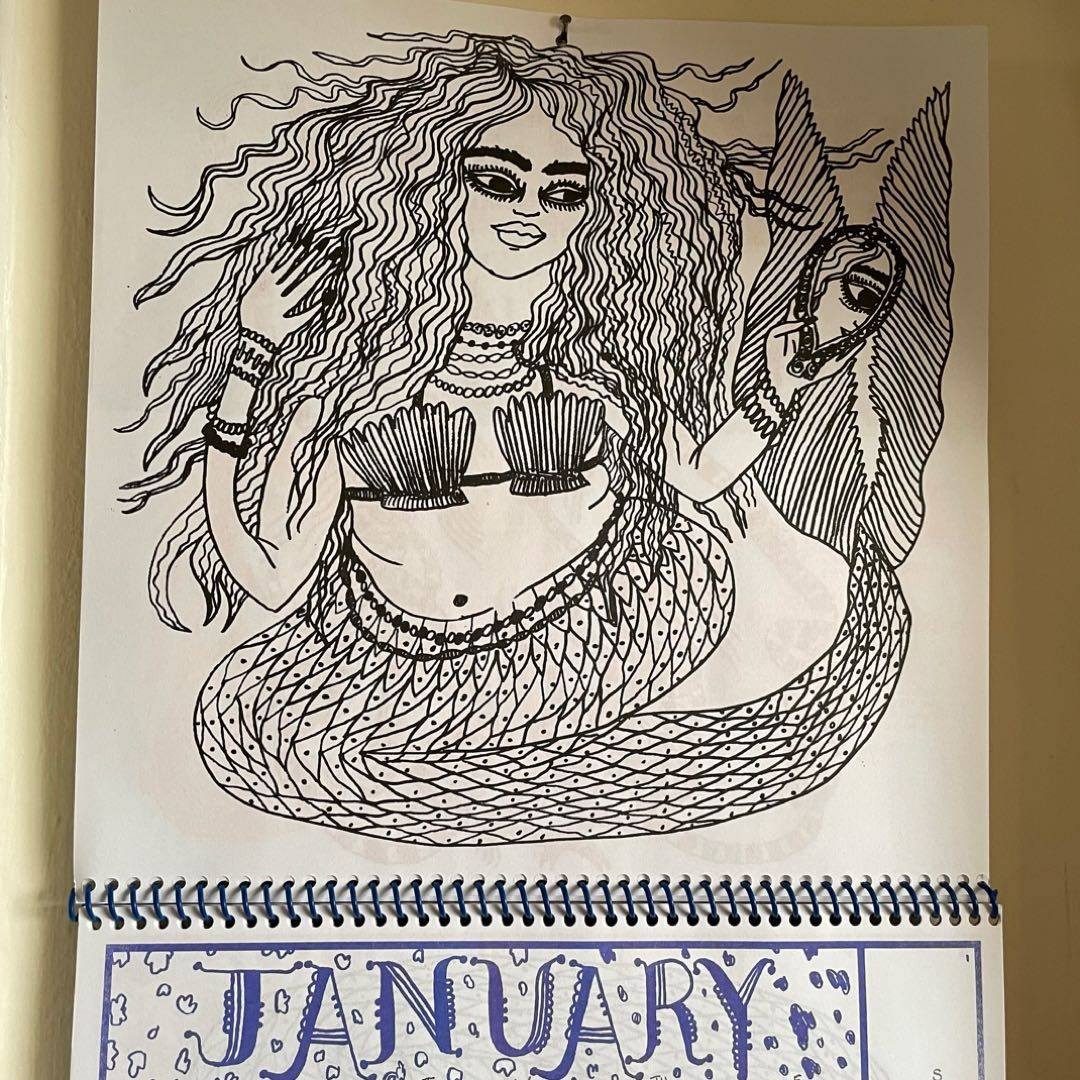 JANUARY
S